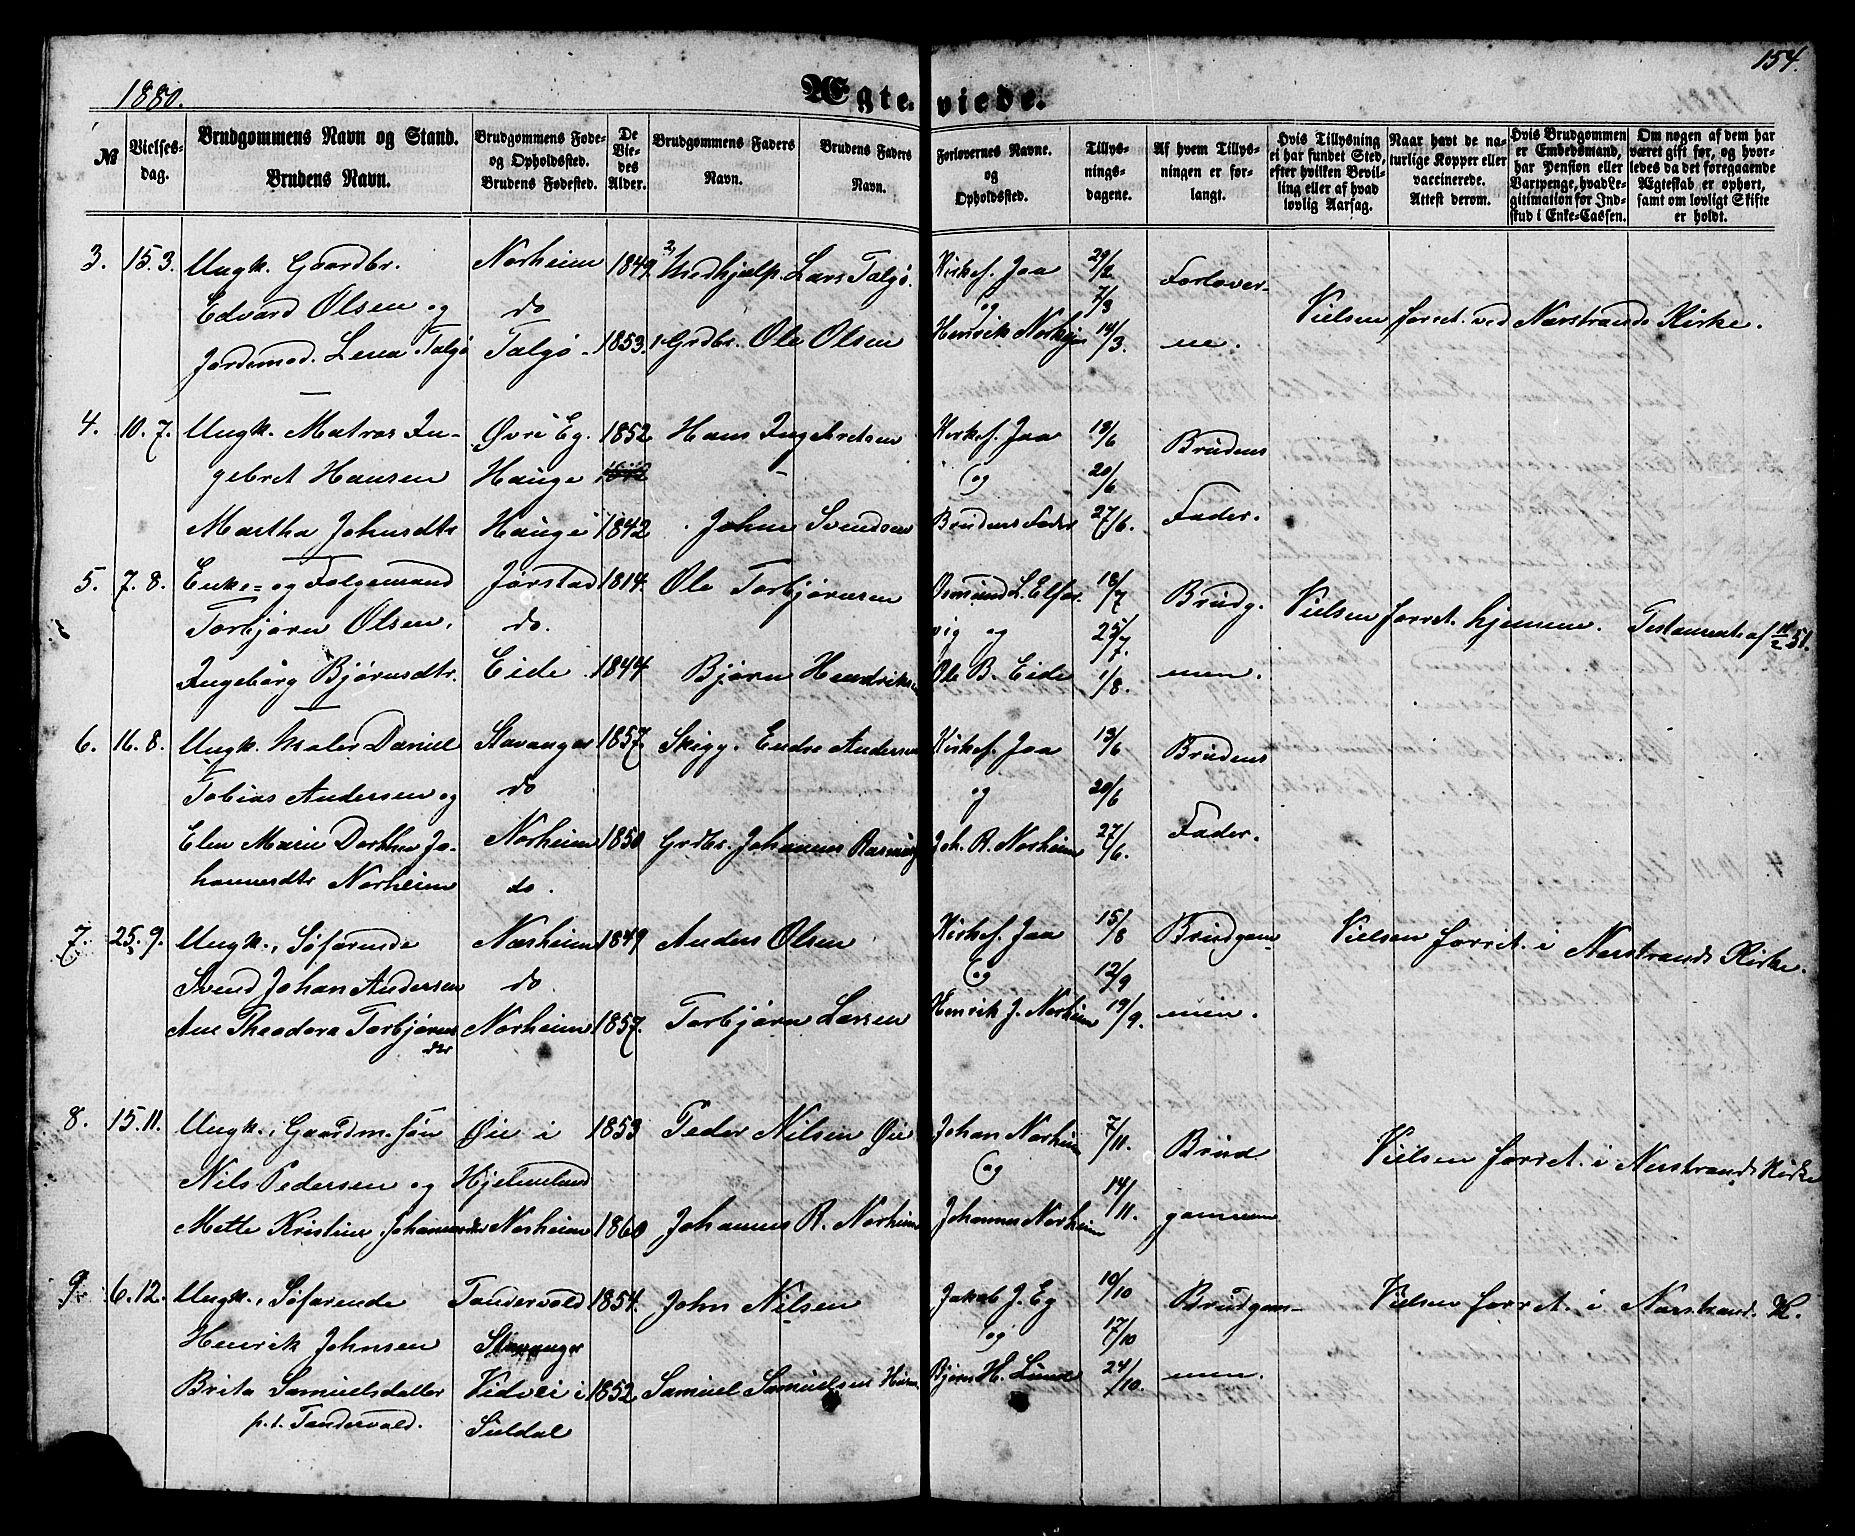 154.
1880.
Ægteviede.
№
Vielses-
dag.
Brudgommens Navn og Stand.
Brudens Navn.
Brudgommens Føde-
og Opholdssted.
Brudens Fødested.
De
Vie-
des
Alder.
Brudgommens Faders
Navn.
Brudens Faders
Navn.
Forlovernes Navne.
og
Opholdssted.
Tillys-
nings-
dagene.
Af hvem Tillys-
ningen er for-
langt.
Hvis Tillysning
ei har fundet Sted,
efter hvilken Bevil-
ling eller af hvad
lovlig Aarsag.
Naar havt de na-
turlige Kopper eller
vaccinerede.
Attest derom.
Hvis Brudgommen
er Embedsmand,
har Pension eller
Vartpenge, hvad Le-
gitimation for Ind-
skud i Enke-Cassen.
Om nogen af dem har
været gift før, og hvor-
ledes da det foregaaende
Ægteskab er ophørt,
samt om lovligt Skifte
er holdt.
3. 15. 3. Ungk. Gaardbr. Norheim 1849 2, Medhjælp. Lars Talgø. Kirkes. Jaa 29/2 Forlover-
Edvard Olsen og do og 7/3 Vielsen forret. ved Nærstrands Kirke.
Jordemod. Lena Talgø Talgø 1853. 1. Grdbr. Ole Olsen Henrik Norheim 14/3. ne.
4. 10. 7. Ungk. Matros In- Øvre Eg. 1852 Hans Ingebretsen Kirkes. Jaa 13/6 Brudens
gebret Hansen Hauge og 20/6
Martha Johnsdtr Hauge 1842 John Svendsen Brudens Fader 27/6. Fader.
5. 7. 8. Enke- og Følgemand Jørstad 1814. Ole Torbjørnsen Osmund L. Elfar- 18/7 Brudg.
Torbjørn Olsen, do. vig og 25/7. Vielsen forret. hjemme. Testamente af 51.
Ingeborg Bjørnsdtr. Eide 1844 Bjørn Hendriksen Ole B. Eide 1/8. men.
6. 16. 8. Ungk. Maler Daniel Stavanger 1857. Skigg. Endre Andersen Kirkes. Jaa 13/6 Brudens
Tobias Andersen og do og 20/6
Elen Marie Dorthea Jo- Norheim 1850 Grdbr. Johannes Rasmus Joh. R. Norheim 27/6. Fader.
hannesdtr Norheim do.
7. 25. 9. Ungk., Søfarende Norheim 1849 Anders Olsen Kirkes. Jaa 15/8 Brudgom- Vielsen forret. i Nærstrands Kirke.
Svend Johan Andersen do. og 12/9
Ane Theodora Torbjørns- Norheim 1857. Torbjørn Larsen Henrik J. Norheim 19/9. men.
dtr
8. 15. 11. Ungk., Gaardm. søn Øie i 1853 Peder Nilsen Øie Johan Norheim 7/11. Brud- Vielsen forret. i Nærstrands Kirke
Nils Pedersen og Hjelmeland og
Mette Kristine Johannesdtr Norheim 1860 Johannes R. Norheim Johannes Norheim 14/11. gommen
9. 6. 12. Ungk., Søfarende Tandervold 1854. John Nilsen Jakob J. Eg 10/10 Brudgom- Vielsen forret. i Nærstrand. K.
Henrik Johnsen Stavanger og 17/10
Brita Samuelsdatter Vidvei i 1852 Samuel Samuelsen Bjørn H. Lunde 24/10. men.
p. t. Tandervold. Suldal